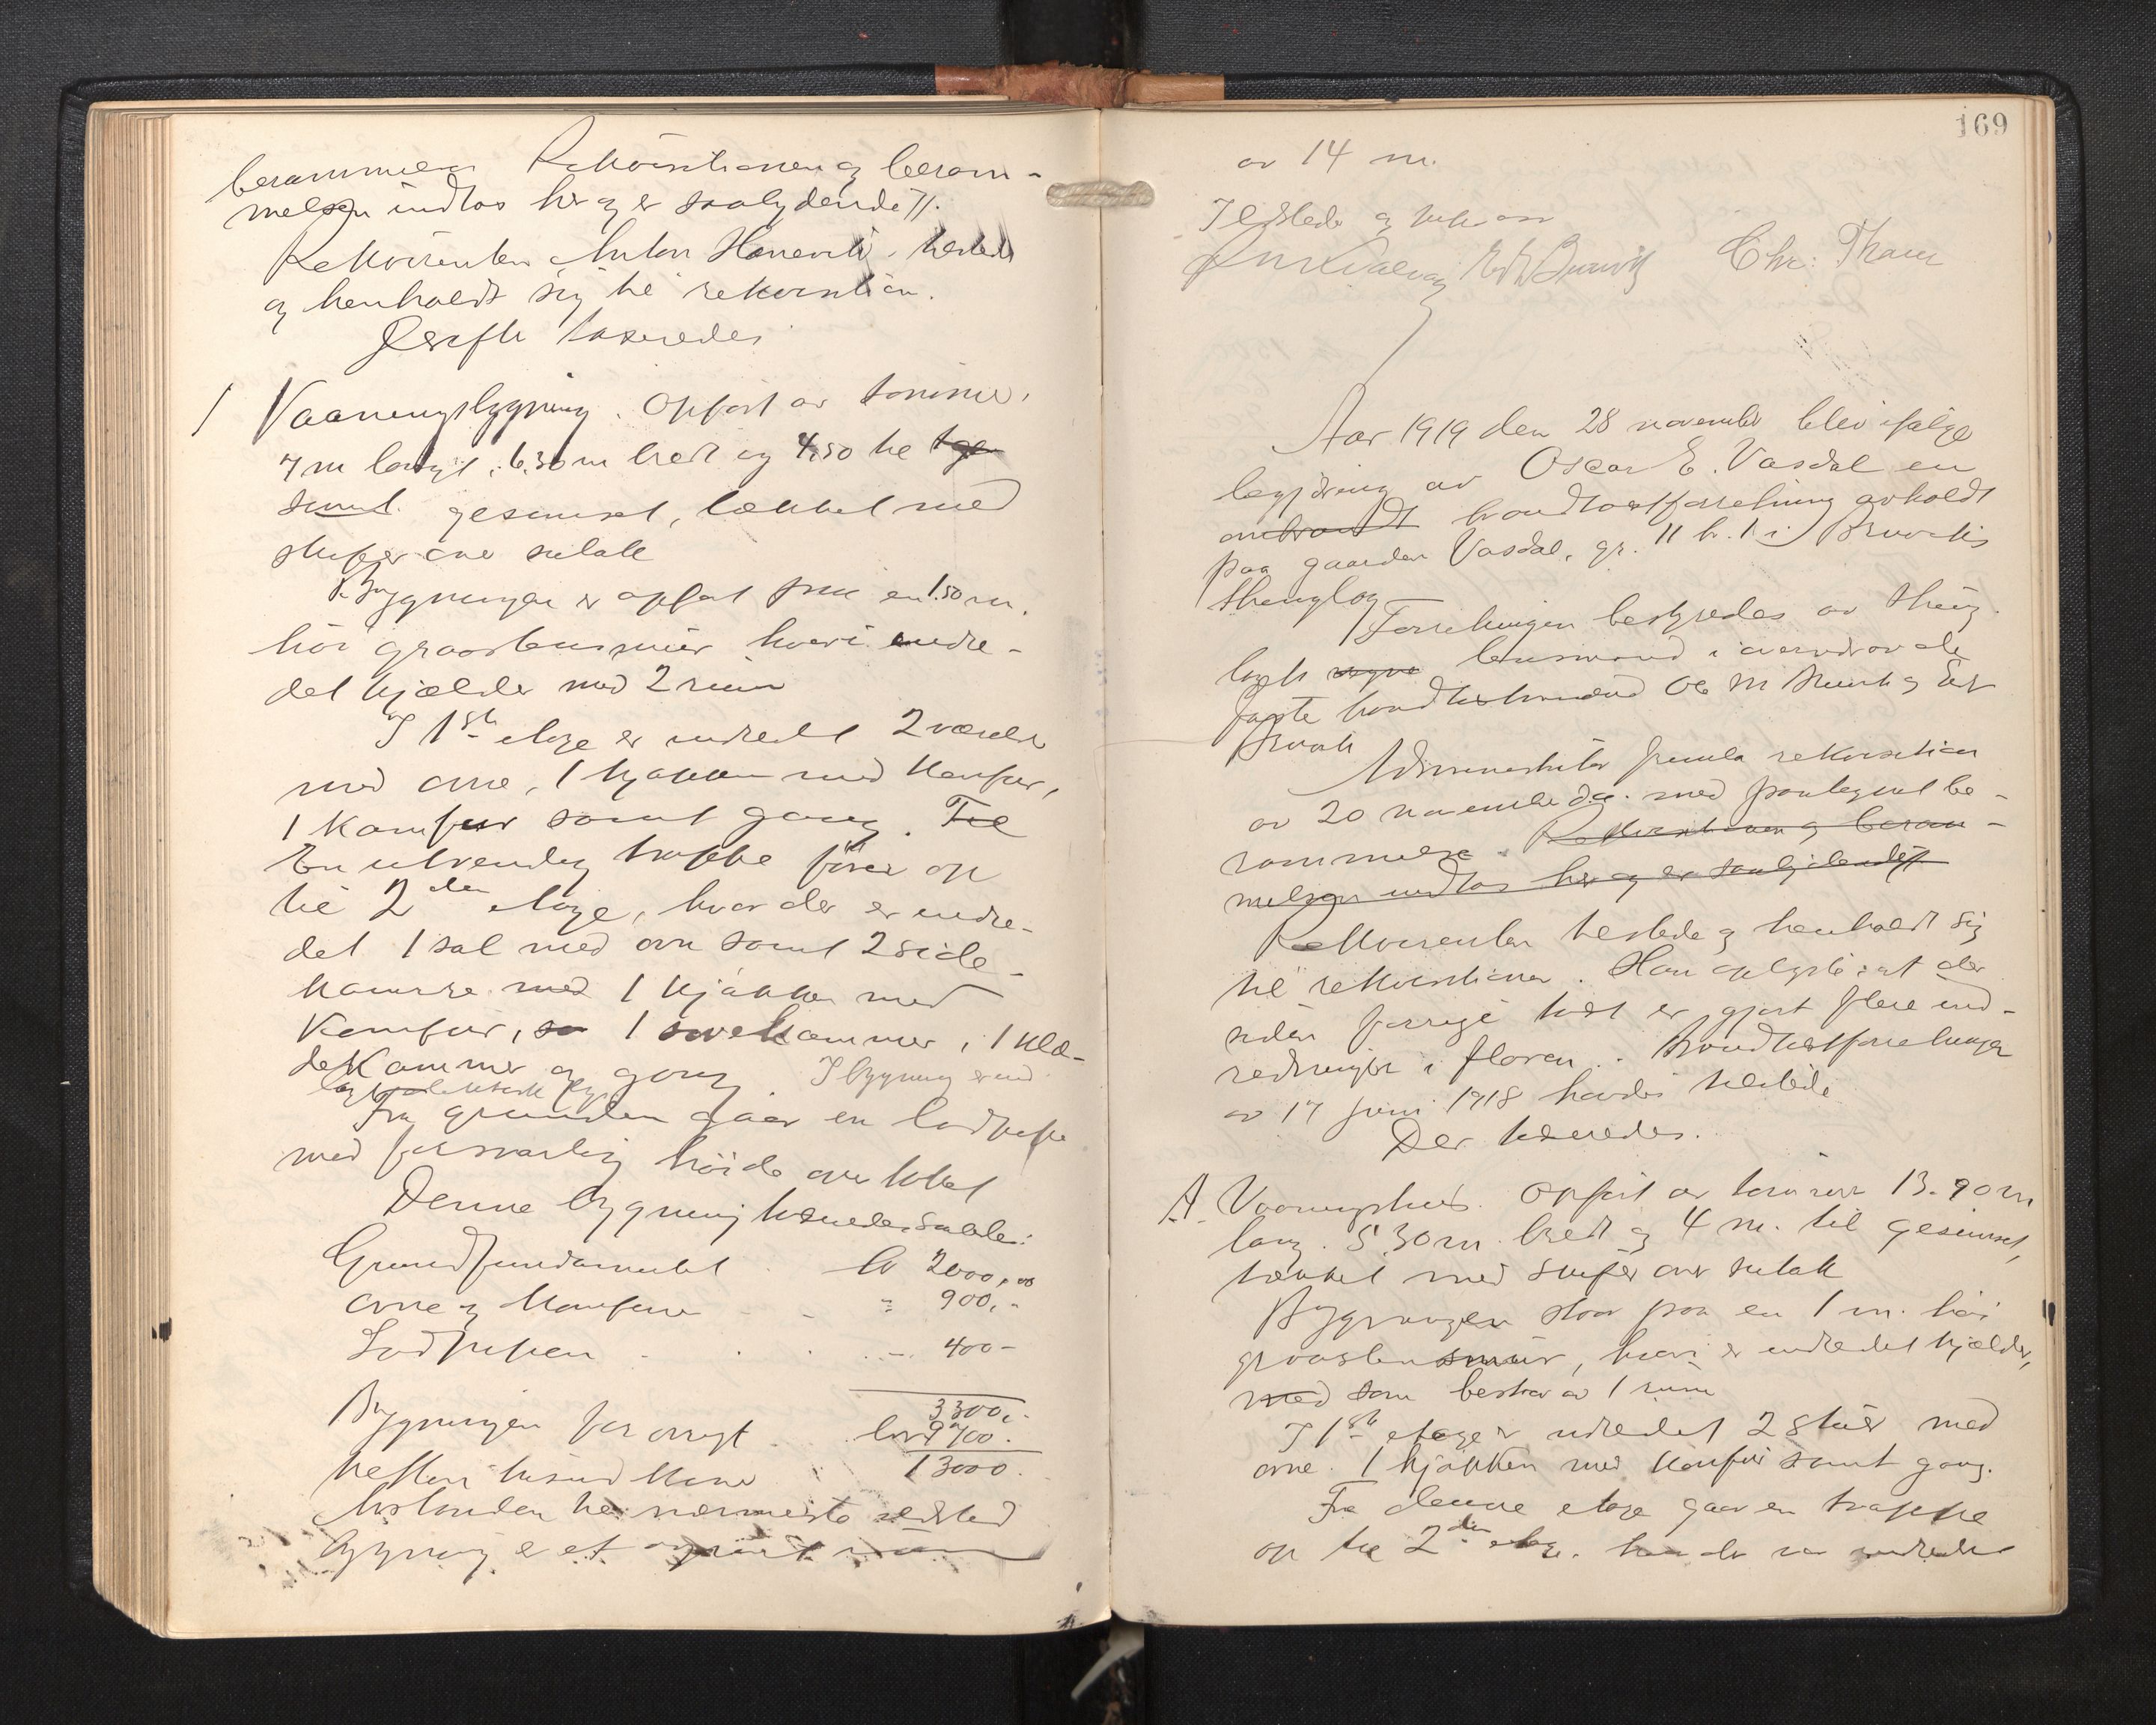 berammelse Rekvisitionen og beram-
melsen indtas her og er saalydende ).
Rekvirenten Anton tilstede
og henholdt sig til rekvisition.
Derefter taxeredes
1 Vaaningsbygning. Opført av tømmer,
7 m langt, 6.30 m bredt og 4,50 til
gesimset, tækket med
skifer over sutak
Bygningen er opført paa en 1.50 m.
høi graastensmur hvori indre-
det kjælder med 2 rum
I 1ste etage er indredet 2 værelser
med ovne, 1 kjøkken med komfur,
1 kamfur samt gang. Til
En utvendig trappe fører op
til 2den etage, hvor der er indre-
det 1 sal med ovn samt 2 side-
kamre med 1 kjøkken med
Komfur, sa 1 sovekammer, 1 klæ-
dekammer og gang I bygning er ind
lagt elektrisk lys
Fra grunden gaar en lodpipe
med forsvarlig høide over taket
Denne bygning taxeredes saaledes:
Grundfundamentet kr 2000,00
ovne og komfurer - - " 900,-
Lodpipen - . . - 400-
3300,-
Bygningen forøvrigt . kr 9700.
tretten tusind kroner 13000.
Avstanden til nærmeste ildsted
bygning er et
169
av 14 m.
Oplæst og vedtat
Chr. Tham
Aar 1919 den 28 november blev ifølge
begjæring av Oscar E. Vasdal en
ombrandt brandtaxtforretning avholdt
paa gaarden Vasdal, gr. 11 br. 1 i Bruviks
thinglag
Forretningen bestyredes av thing-
lagets lensmand i overvær av de
faste brandtaxtmænd Ole M Bruvik og
Bruvik
Administrator fremla rekvisition
av 20 november d.a. med paategnet be-
rammelse. Rekvisitionen og beram-
melsen indtas her og er saalydende
Rekvirenten tilstede og henholdt sig
til rekvisitionen. Han oplyste at der
siden forrige takst er gjort flere ind-
redninger i floren. Brandtaxtforretninger
av 17 juni 1918 havdes tilstede
Der taxeredes.
A. Vaaningshus. Opført av tømmer 13.90 m
lang. 5.30 m. bredt og 4 m. til gesimset,
tækket med skifer over sutak
Bygningen staar paa en 1 m. høi
graastensmur, hvori er indredet kjælder,
med som bestaar av 1 rum
I 1ste etage er indredet 2 stuer med
ovne. 1 kjøkken med komfur samt gang.
Fra denne etage gaar en trappe
op til 2den etage. hvor der var indredet